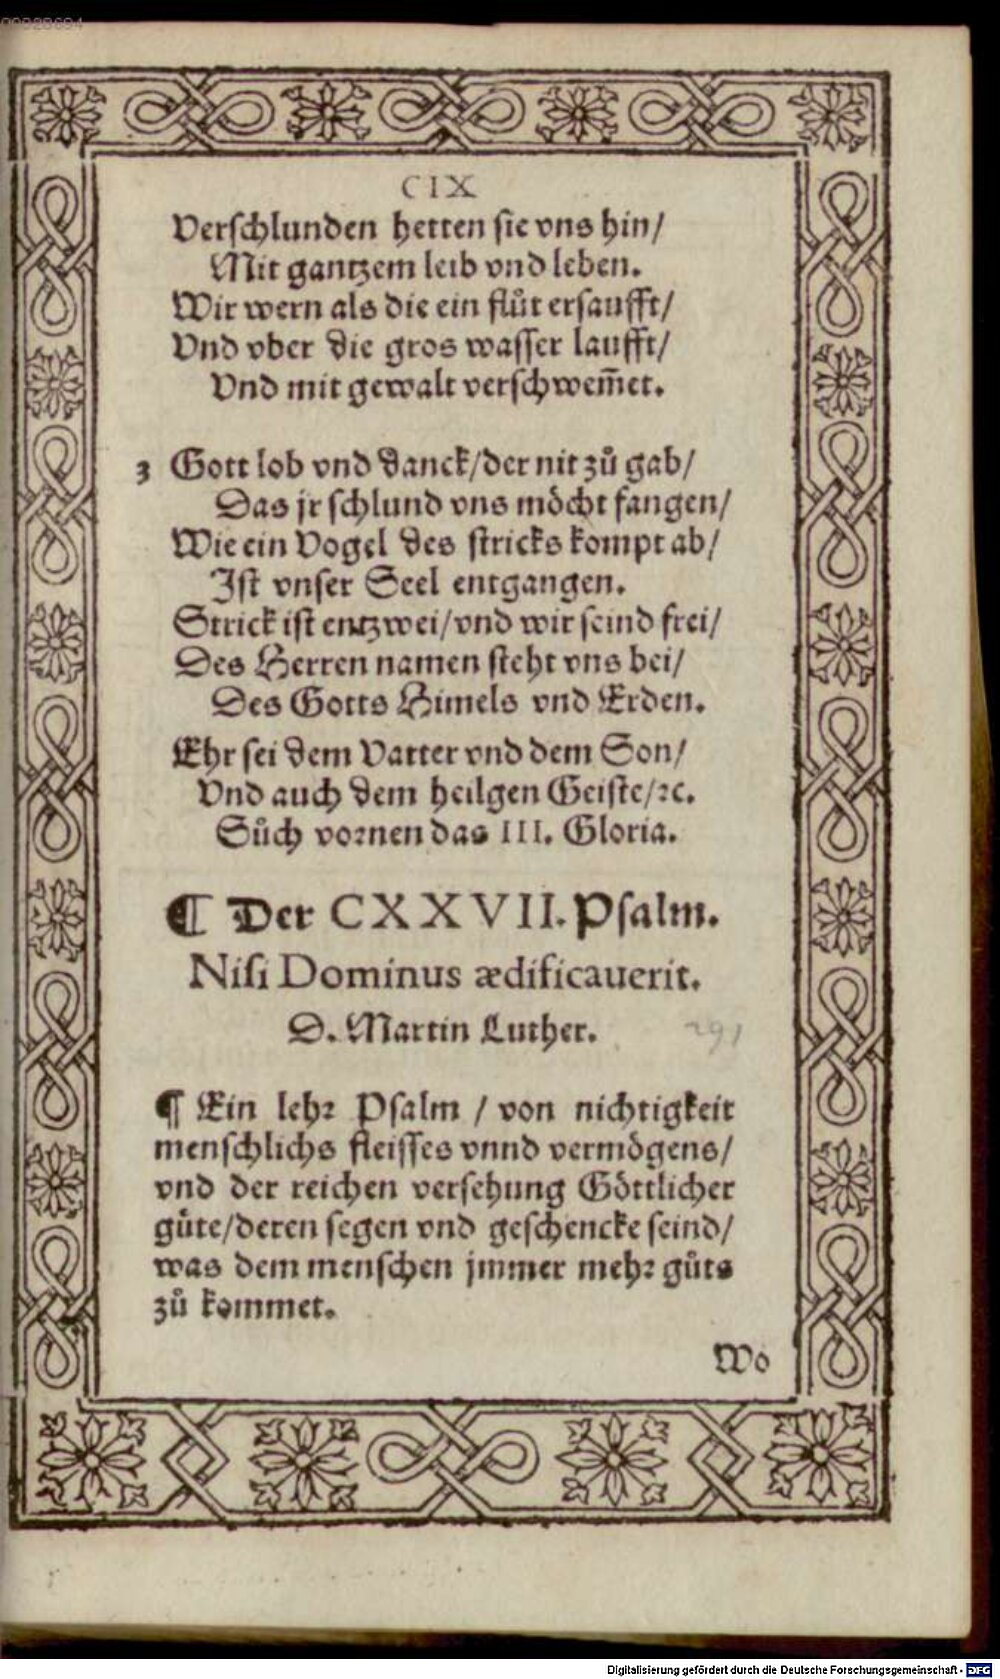 00028694
CIX
Verschlunden hetten sie vns hin/
Mit gantzem leib vnd leben.
Wir wern als die ein flůt ersaufft/
Vnd vber die gros wasser laufft/
Vnd mit gewalt verschwem̄et.
3 Gott lob vnd danck/der nit zů gab/
Das jr schlund vns möcht fangen/
Wie ein Vogel des stricks kompt ab/
Ist vnser Seel entgangen.
Strick ist entzwei/vnd wir seind frei/
Des Herren namen steht vns bei/
Des Gotts Himels vnd Erden.
Ehr sei dem Vatter vnd dem Son/
Vnd auch dem heilgen Geiste/ꝛc.
Sůch vornen das III. Gloria.
¶ Der CXXVII. Psalm.
Nisi Dominus ædificauerit.
D. Martin Luther.
291
¶ Ein lehr Psalm / von nichtigkeit
menschlichs fleisses vnnd vermögens/
vnd der reichen versehung Göttlicher
gůte/deren segen vnd geschencke seind/
was dem menschen jmmer mehr gůts
zů kommet.
Wo
Digitalisierung gefördert durch die Deutsche Forschungsgemeinschaft - DFG